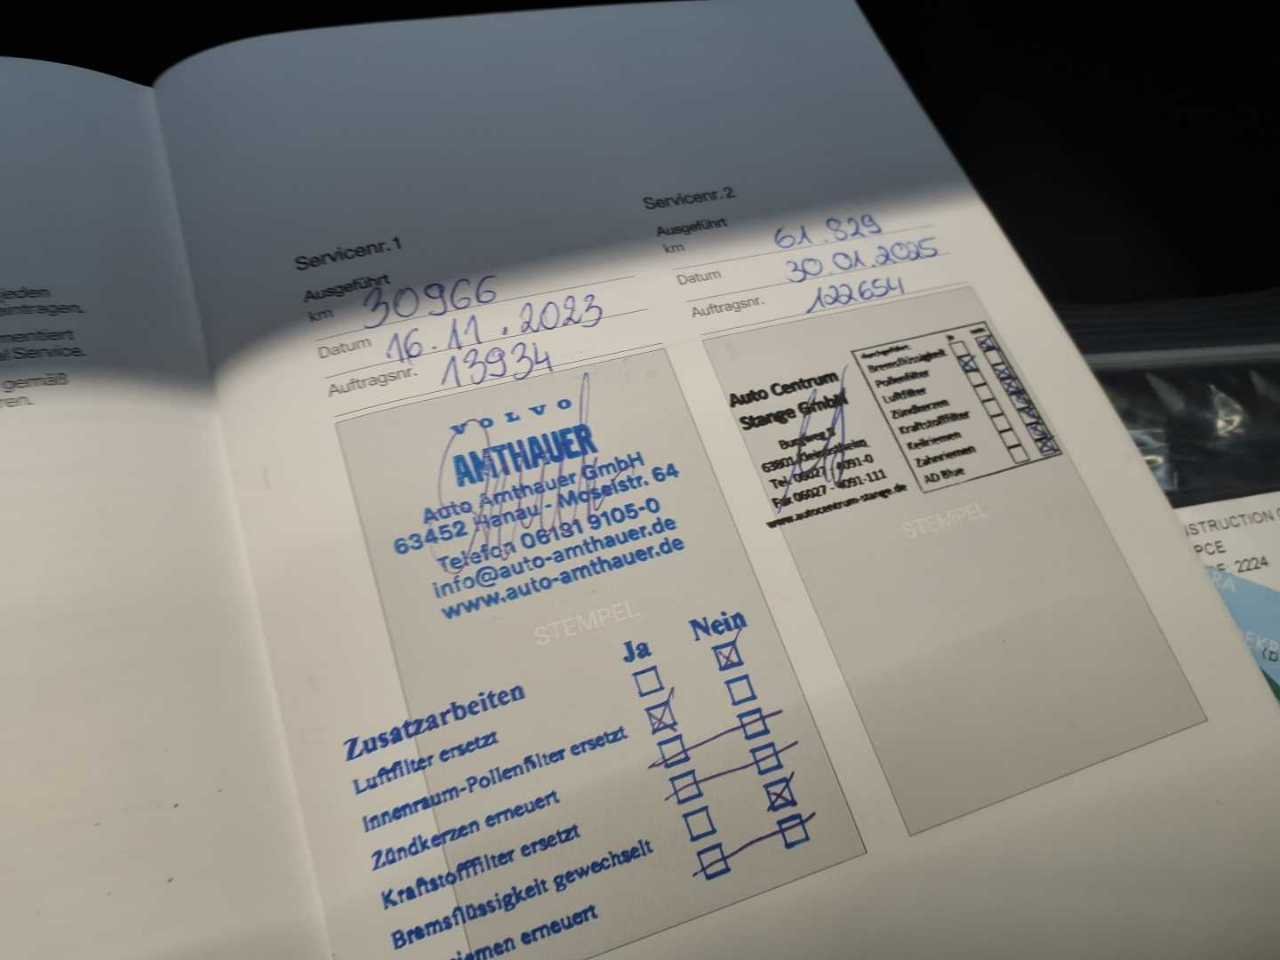 jeden
eintragen.
mentiert
Service.
gemäß
Servicenr. 1
Ausgeführt
km 30966
Datum 16.11.2023
Auftragsnr. 13934
VOLVO
AMTHAUER
Auto Amthauer GmbH
63452 Hanau - Moselstr. 64
Telefon 06181 9105-0
info@auto-amthauer.de
www.auto-amthauer.de
STEMPEL
Ja Nein
Zusatzarbeiten
Luftfilter ersetzt
Innenraum-Pollenfilter ersetzt
Zündkerzen erneuert
Kraftstofffilter ersetzt
Bremsflüssigkeit gewechselt
riemen erneuert
Servicenr. 2
Ausgeführt
km 61.829
Datum 30.01.2025
Auftragsnr. 122654
Auto Centrum
Stange GmbH
63801 Kleinostheim
Tel. 06027 - 4091-0
Fax 06027 - 4091-111
www.autocentrum-stange.de
durchgeführt:
Bremsflüssigkeit
Pollenfilter
Luftfilter
Zündkerzen
Kraftstofffilter
Keilriemen
Zahnriemen
AD Blue
STEMPEL
2224